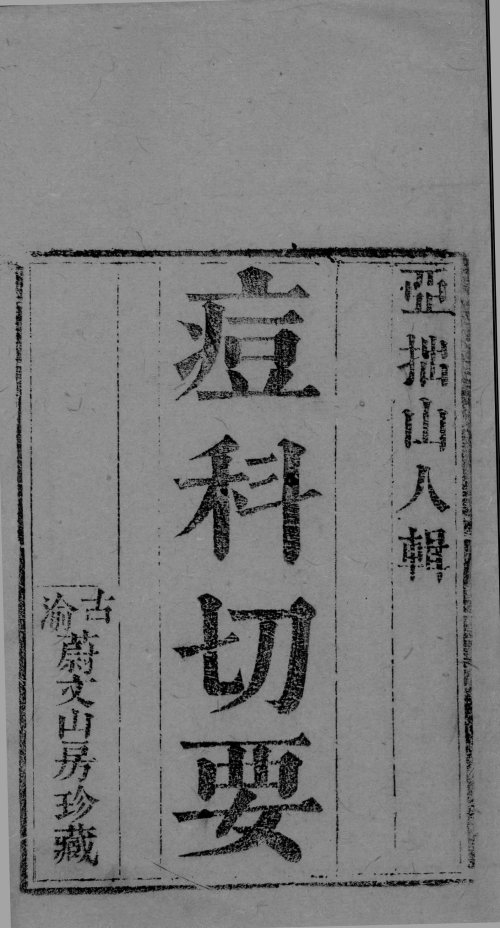 亞拙山人輯
痘科切要
古渝蔚文山房珍藏